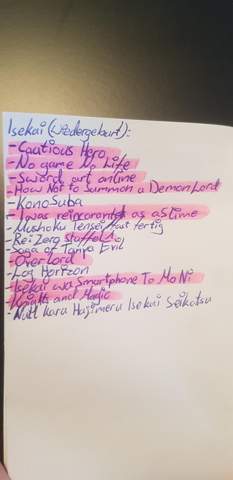 Isekai (Wiedergeburt):
- Cautious Hero
- No game No Life
- Sword art online
- How Not to Summon a Demon Lord
- KonoSuba
- I was reincarontet as a Slime
- Mushoku Tensei fast fertig
- Rei Zero Staffel 1
- Saga of Tanya Evil
- Overlord
- Log Horizon
- Isekai wa Smartphone To Mo Ni
- Knights and Magic
- Kara Hajimeru Isekai Seikatsu